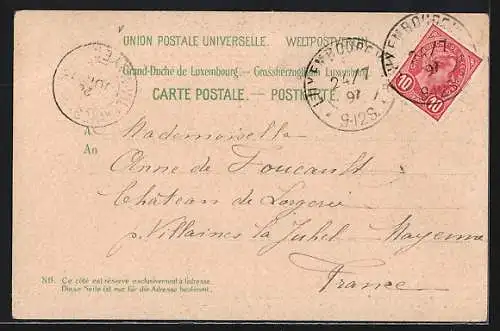 UNION POSTALE UNIVERSELLE. WELTPOSTVEREIN.
Grand-Duche de Luxembourg. — Grossherzogthum Luxemburg.
CARTE POSTALE. — POSTKARTE.
LUXEMBOURG
24/7
97
9-12 S.
LUXEMBOURG
24/7
97
9-12 S.
10
A Mademoiselle
An Anne de Foucault
Château de Lorgerie
p. Villaines la Juhel Mayenne
France
NB. Ce côté est réservé exclusivement à l'adresse.
Diese Seite ist nur für die Adresse bestimmt.